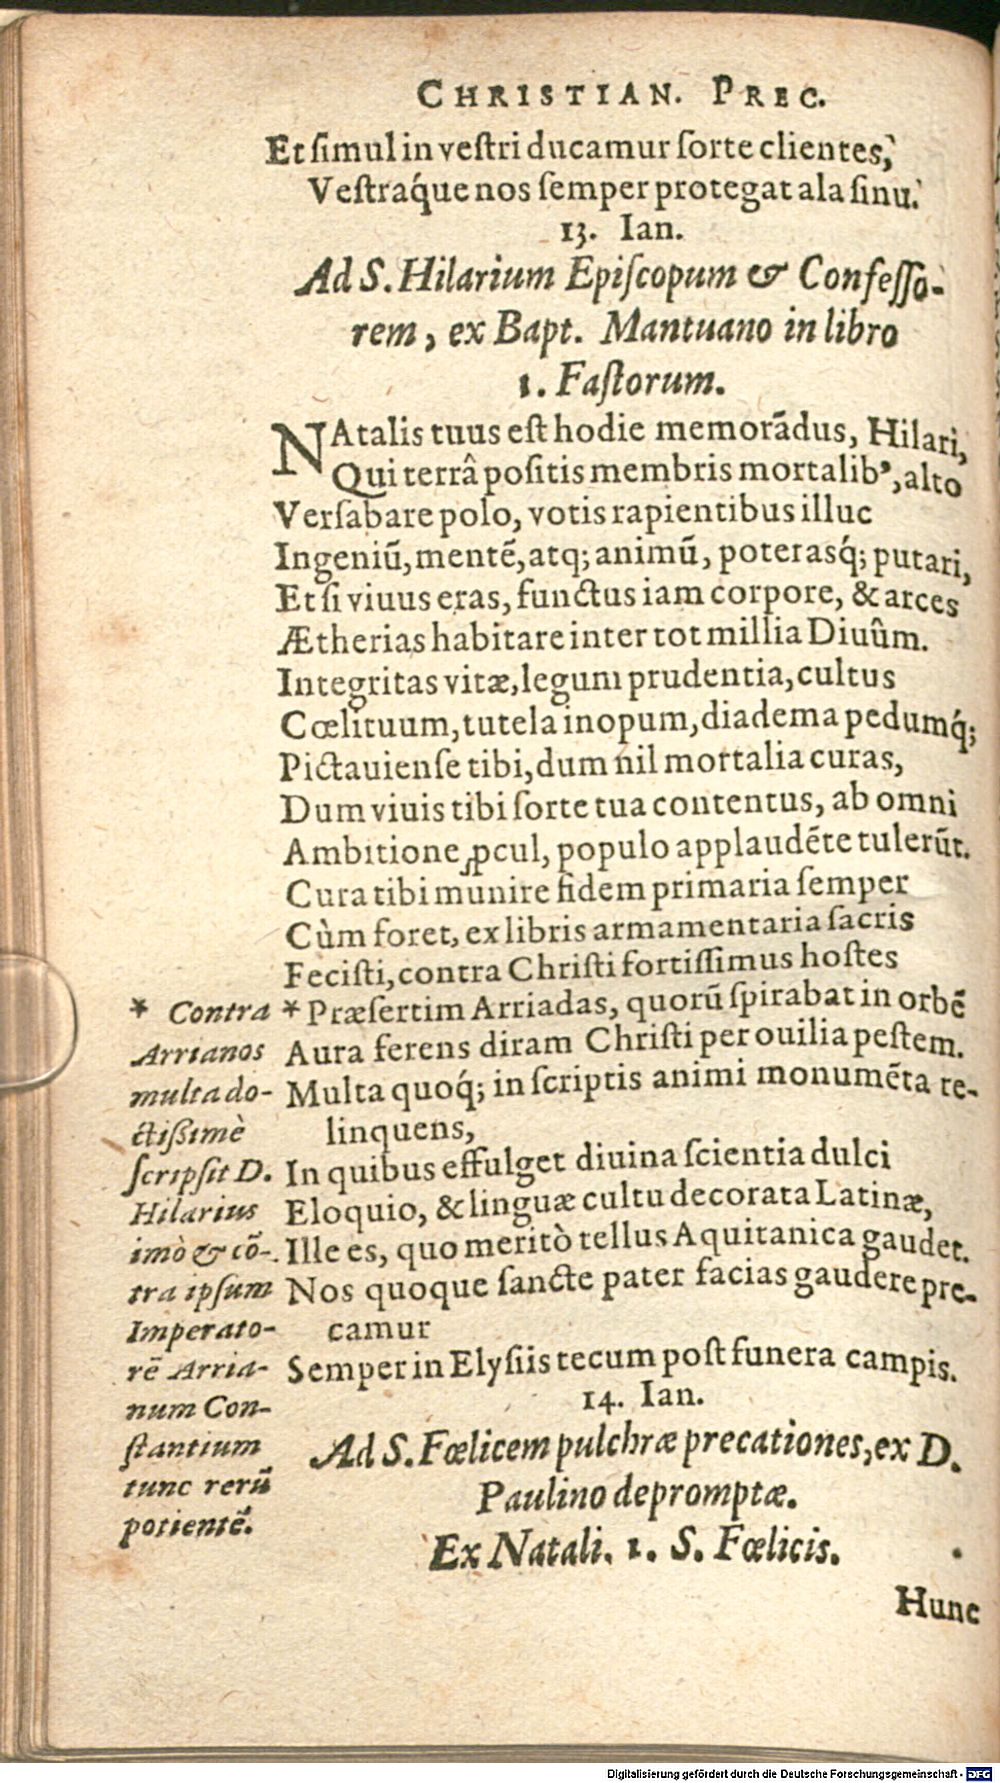 CHRISTIAN. PREC.
Et simul in vestri ducamur sorte clientes,
Vestraq́ue nos semper protegat ala sinu.
13. Ian.
Ad S. Hilarium Episcopum & Confesso-
rem, ex Bapt. Mantuano in libro
1. Fastorum.
NAtalis tuus est hodie memorãdus, Hilari,
Qui terrâ positis membris mortalibꝰ, alto
Versabare polo, votis rapientibus illuc
Ingeniũ, mentẽ, atq; animũ, poterasq́; putari,
Et si viuus eras, functus iam corpore, & arces
Ætherias habitare inter tot millia Diuûm.
Integritas vitæ, legum prudentia, cultus
Cœlituum, tutela inopum, diadema pedumq́;
Pictauiense tibi, dum nil mortalia curas,
Dum viuis tibi sorte tua contentus, ab omni
Ambitione ꝓcul, populo applaudẽte tulerũt.
Cura tibi munire fidem primaria semper
Cùm foret, ex libris armamentaria sacris
Fecisti, contra Christi fortissimus hostes
* Præsertim Arriadas, quorũ spirabat in orbẽ
Aura ferens diram Christi per ouilia pestem.
Multa quoq́; in scriptis animi monumẽta re-
linquens,
In quibus effulget diuina scientia dulci
Eloquio, & linguæ cultu decorata Latinæ,
Ille es, quo meritò tellus Aquitanica gaudet.
Nos quoque sancte pater facias gaudere pre-
camur
Semper in Elysiis tecum post funera campis.
* Contra
Arrianos
multa do-
ctissimè
scripsit D.
Hilarius
imò & cõ-
tra ipsum
Imperato-
rẽ Arria-
num Con-
stantium
tunc rerũ
potientẽ.
14. Ian.
Ad S. Fœlicem pulchræ precationes, ex D.
Paulino depromptæ.
Ex Natali. 1. S. Fœlicis.
Hunc
Digitalisierung gefördert durch die Deutsche Forschungsgemeinschaft - DFG